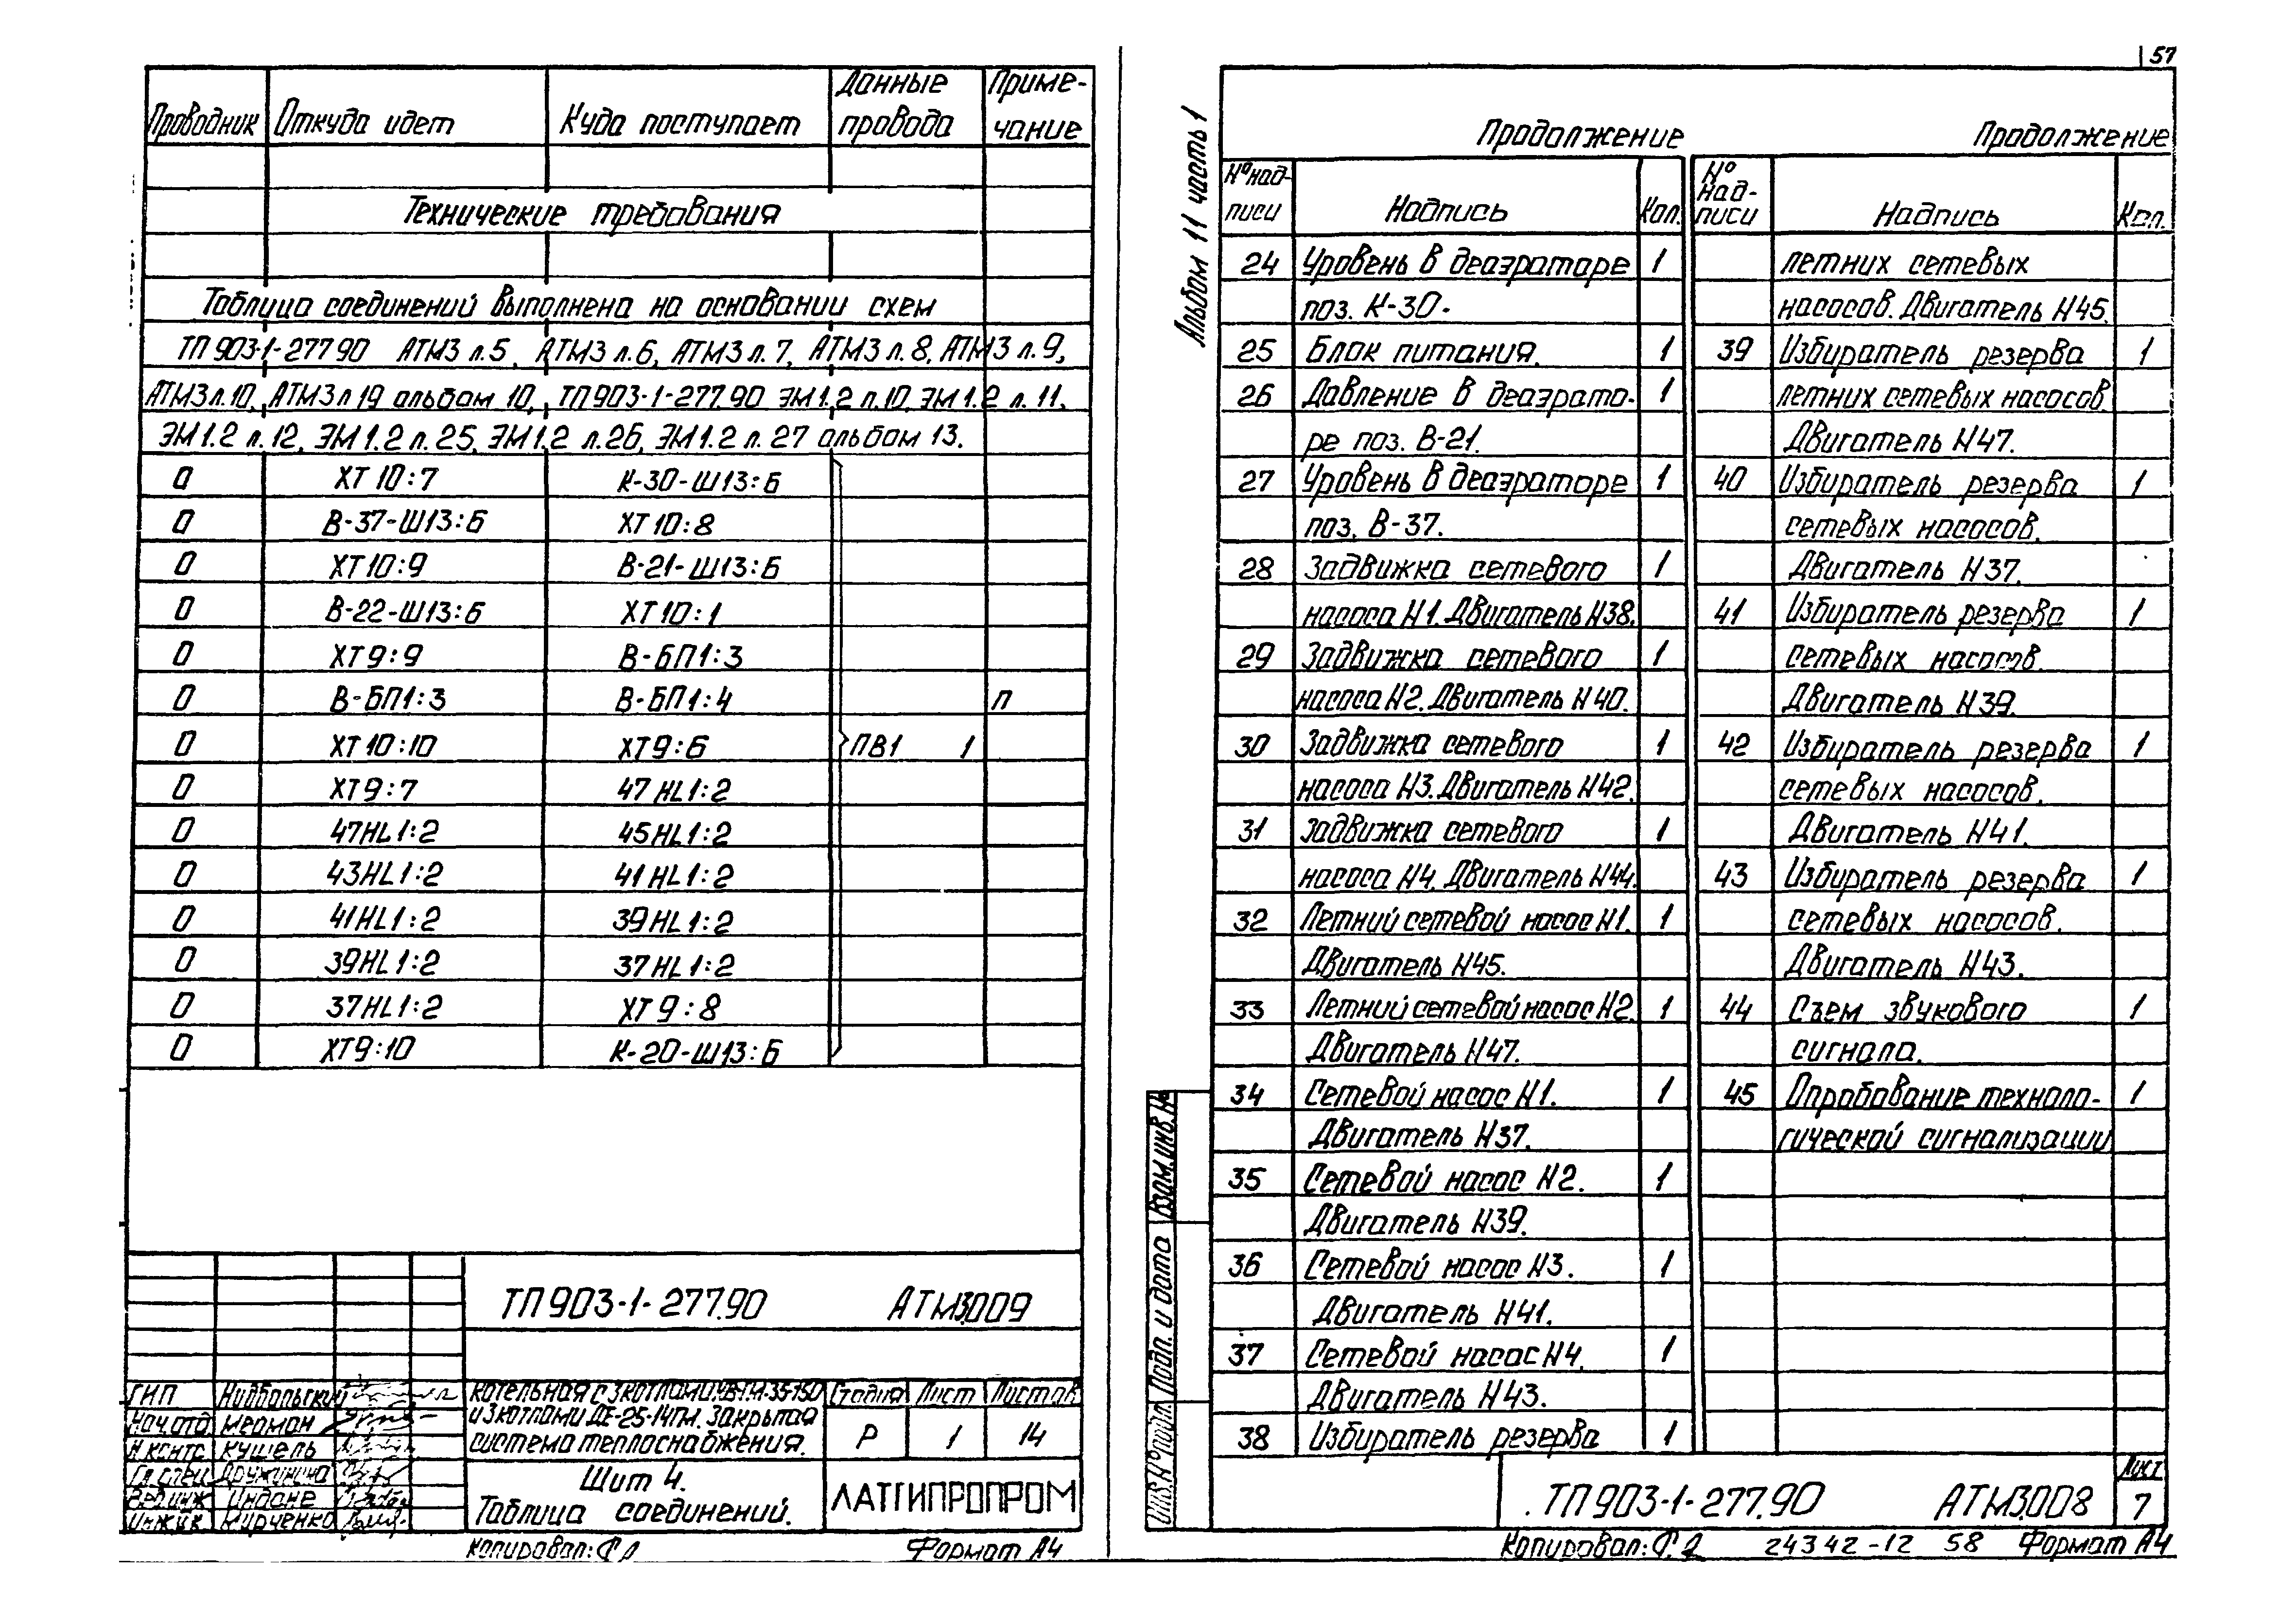 Проводник Откуда идет Куда поступает Данные провода Примечание
Технические требования
Таблица соединений выполнена на основании схем
ТП 903-1-277.90 АТМ3 л.5, АТМ3 л.6, АТМ3 л.7, АТМ3 л.8, АТМ3 л.9,
АТМ3 л.10, АТМ3 л 19 альбом 10, ТП903-1-277.90 ЭМ1.2 л.10, ЭМ1.2 л.11,
ЭМ1.2 л.12, ЭМ1.2 л.25, ЭМ1.2 л.26, ЭМ1.2 л.27 альбом 13.
0 ХТ10:7 К-30-Ш13:Б
0 В-37-Ш13:Б ХТ10:8
0 ХТ10:9 В-21-Ш13:Б
0 В-22-Ш13:Б ХТ10:1
0 ХТ9:9 В-БП1:3
0 В-БП1:3 В-БП1:4 п
0 ХТ10:10 ХТ9:6 ПВ1 1
0 ХТ9:7 47HL1:2
0 47HL1:2 45HL1:2
0 43HL1:2 41HL1:2
0 41HL1:2 39HL1:2
0 39HL1:2 37HL1:2
0 37HL1:2 ХТ9:8
0 ХТ9:10 К-20-Ш13:Б
ТП903-1-277.90 АТМ3.009
ГИП Нидбальский
Нач.отд. Мерман
Н.контр. Кушель
Гл.спец. Дружинина
Вед.инж. Индане
Инж.
котельная с 3 котлами КВ-ГМ-35-150
и 3 котлами ДЕ-25-14ГМ. Закрытая
система теплоснабжения.
Стадия Лист Листов
Р 1 14
Щит 4.
Таблица соединений.
ЛАТГИПРОПРОМ
Копировал: Формат А4
57
Альбом 11 часть 1
Продолжение
№ надписи Надпись Кол.
24 Уровень в деаэраторе 1
поз. К-30.
25 Блок питания. 1
26 Давление в деаэрато- 1
ре поз. В-21.
27 Уровень в деаэраторе 1
поз. В-37.
28 Задвижка сетевого 1
насоса Н1. Двигатель Н38.
29 Задвижка сетевого 1
насоса Н2. Двигатель Н40.
30 Задвижка сетевого 1
насоса Н3. Двигатель Н42.
31 Задвижка сетевого 1
насоса Н4. Двигатель Н44.
32 Летний сетевой насос Н1. 1
Двигатель Н45.
33 Летний сетевой насос Н2. 1
Двигатель Н47.
34 Сетевой насос Н1. 1
Двигатель Н37.
35 Сетевой насос Н2. 1
Двигатель Н39.
36 Сетевой насос Н3. 1
Двигатель Н41.
37 Сетевой насос Н4. 1
Двигатель Н43.
38 Избиратель резерва 1
Продолжение
№ надписи Надпись Кол.
летних сетевых
насосов. Двигатель Н45.
39 Избиратель резерва 1
летних сетевых насосов.
Двигатель Н47.
40 Избиратель резерва 1
сетевых насосов.
Двигатель Н37.
41 Избиратель резерва 1
сетевых насосов.
Двигатель Н39.
42 Избиратель резерва 1
сетевых насосов.
Двигатель Н41.
43 Избиратель резерва 1
сетевых насосов.
Двигатель Н43.
44 Съем звукового 1
сигнала.
45 Опробование техноло- 1
гической сигнализации
Инв.№ подл. Подп. и дата Взам.инв.№
ТП903-1-277.90 АТМ3.008
Лист
7
Копировал: 24342-12 58 Формат А4